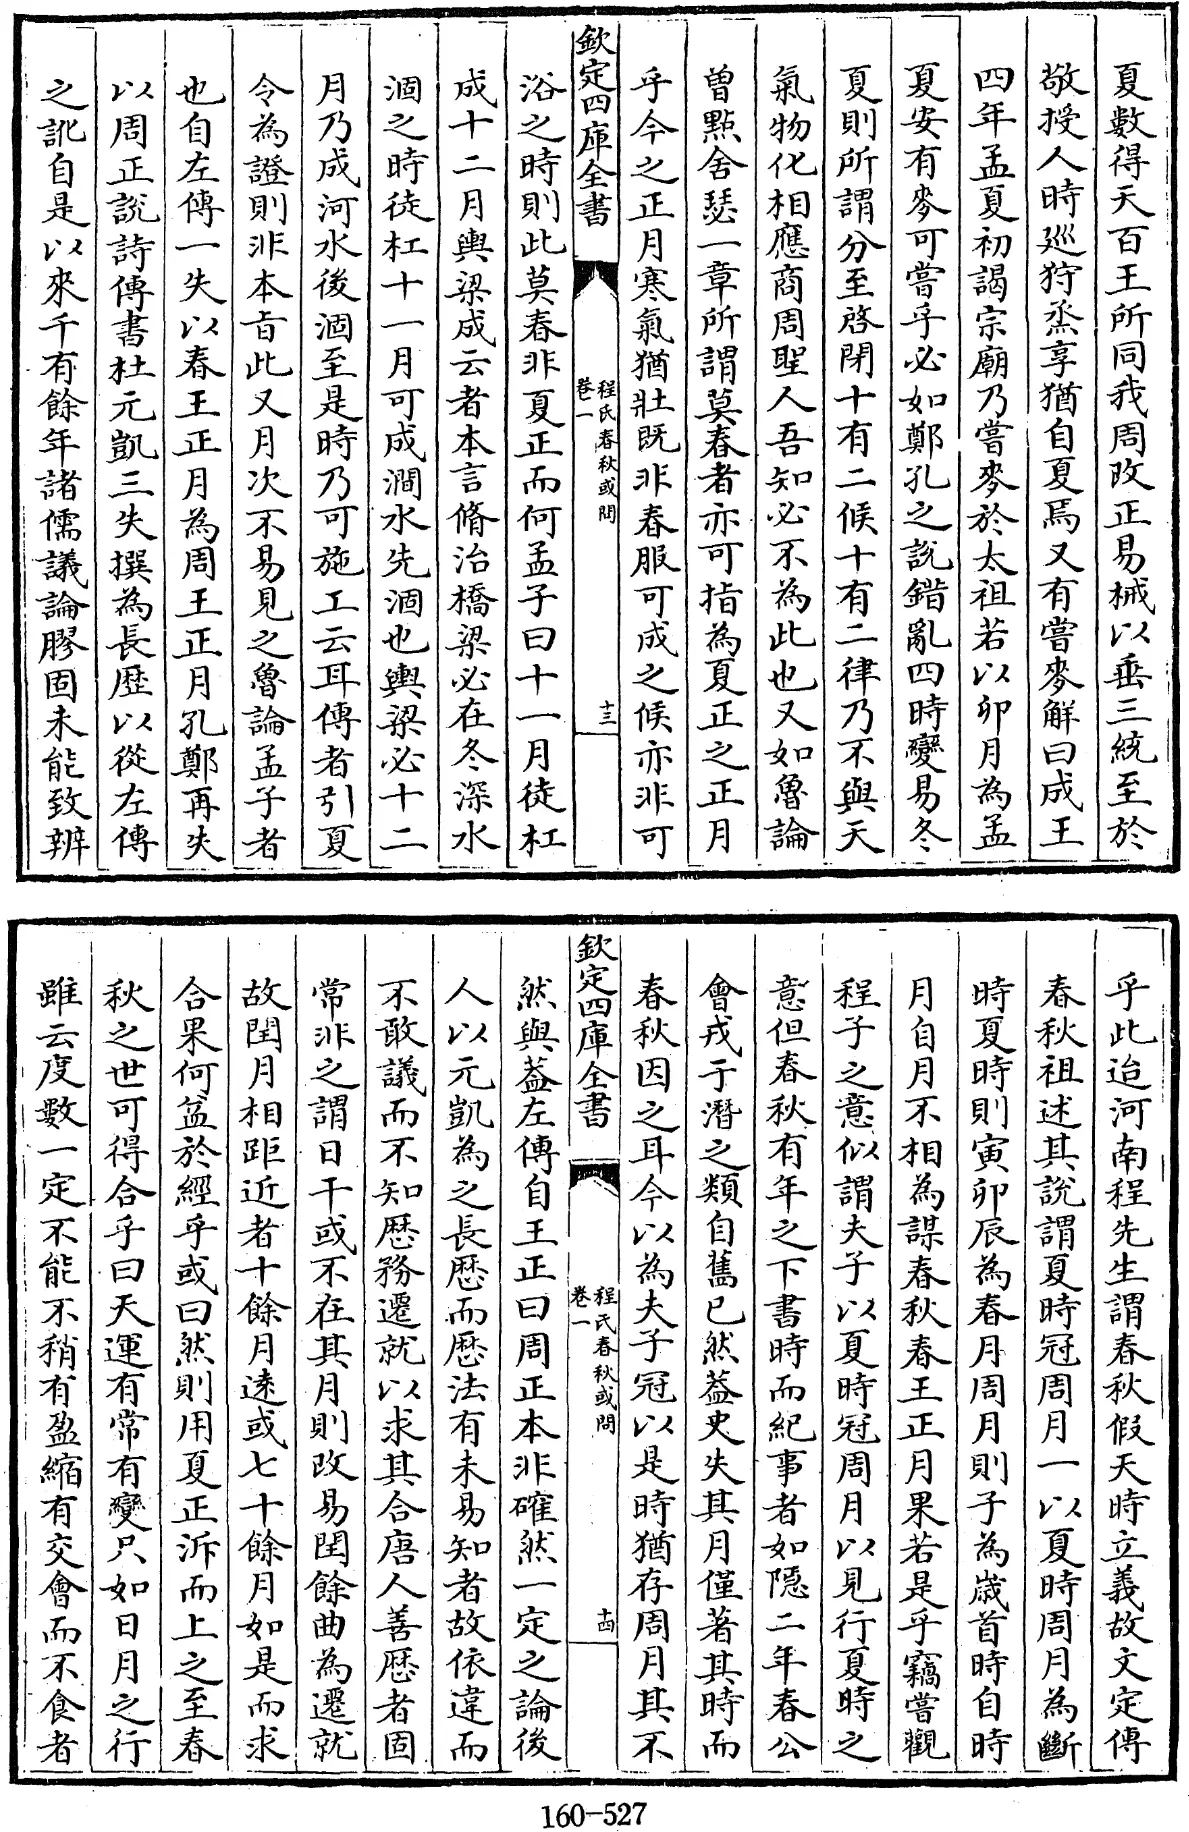 夏數得天百王所同我周改正易械以垂三統至於
敬授人時廵狩烝享猶自夏焉又有嘗麥解曰成王
四年孟夏初謁宗廟乃嘗麥於太祖若以卯月為孟
夏安有麥可嘗乎必如鄭孔之説錯亂四時變易冬
夏則所謂分至啓閉十有二候十有二律乃不與天
氣物化相應商周聖人吾知必不為此也又如魯論
曽㸃舍瑟一章所謂莫春者亦可指為夏正之正月
乎今之正月寒氣猶壯既非春服可成之候亦非可
欽定四庫全書
程氏春秋或問
卷一
十三
浴之時則此莫春非夏正而何孟子曰十一月徒杠
成十二月輿梁成云者本言脩治橋梁必在冬深水
涸之時徒杠十一月可成澗水先涸也輿梁必十二
月乃成河水後涸至是時乃可施工云耳傳者引夏
令為證則非本㫖此又月次不易見之魯論孟子者
也自左傳一失以春王正月為周王正月孔鄭再失
以周正説詩傳書杜元凱三失撰為長歴以從左傳
之訛自是以來千有餘年諸儒議論膠固未能致辨
乎此迨河南程先生謂春秋假天時立義故文定傳
春秋祖述其説謂夏時冠周月一以夏時周月為斷
時夏時則寅卯辰為春月周月則子為歲首時自時
月自月不相為謀春秋春王正月果若是乎竊嘗觀
程子之意似謂夫子以夏時冠周月以見行夏時之
意但春秋有年之下書時而紀事者如隱二年春公
會戎于潛之類自舊已然葢史失其月僅著其時而
春秋因之耳今以為夫子冠以是時猶存周月其不
欽定四庫全書
程氏春秋或問
卷一
十四
然與葢左傳自王正曰周正本非確然一定之論後
人以元凱為之長厯而厯法有未易知者故依違而
不敢議而不知厯務遷就以求其合唐人善厯者固
常非之謂日干或不在其月則改易閏餘曲為遷就
故閏月相距近者十餘月逺或七十餘月如是而求
合果何益於經乎或曰然則用夏正泝而上之至春
秋之世可得合乎曰天運有常有變只如日月之行
雖云度數一定不能不稍有盈縮有交會而不食者
160-527